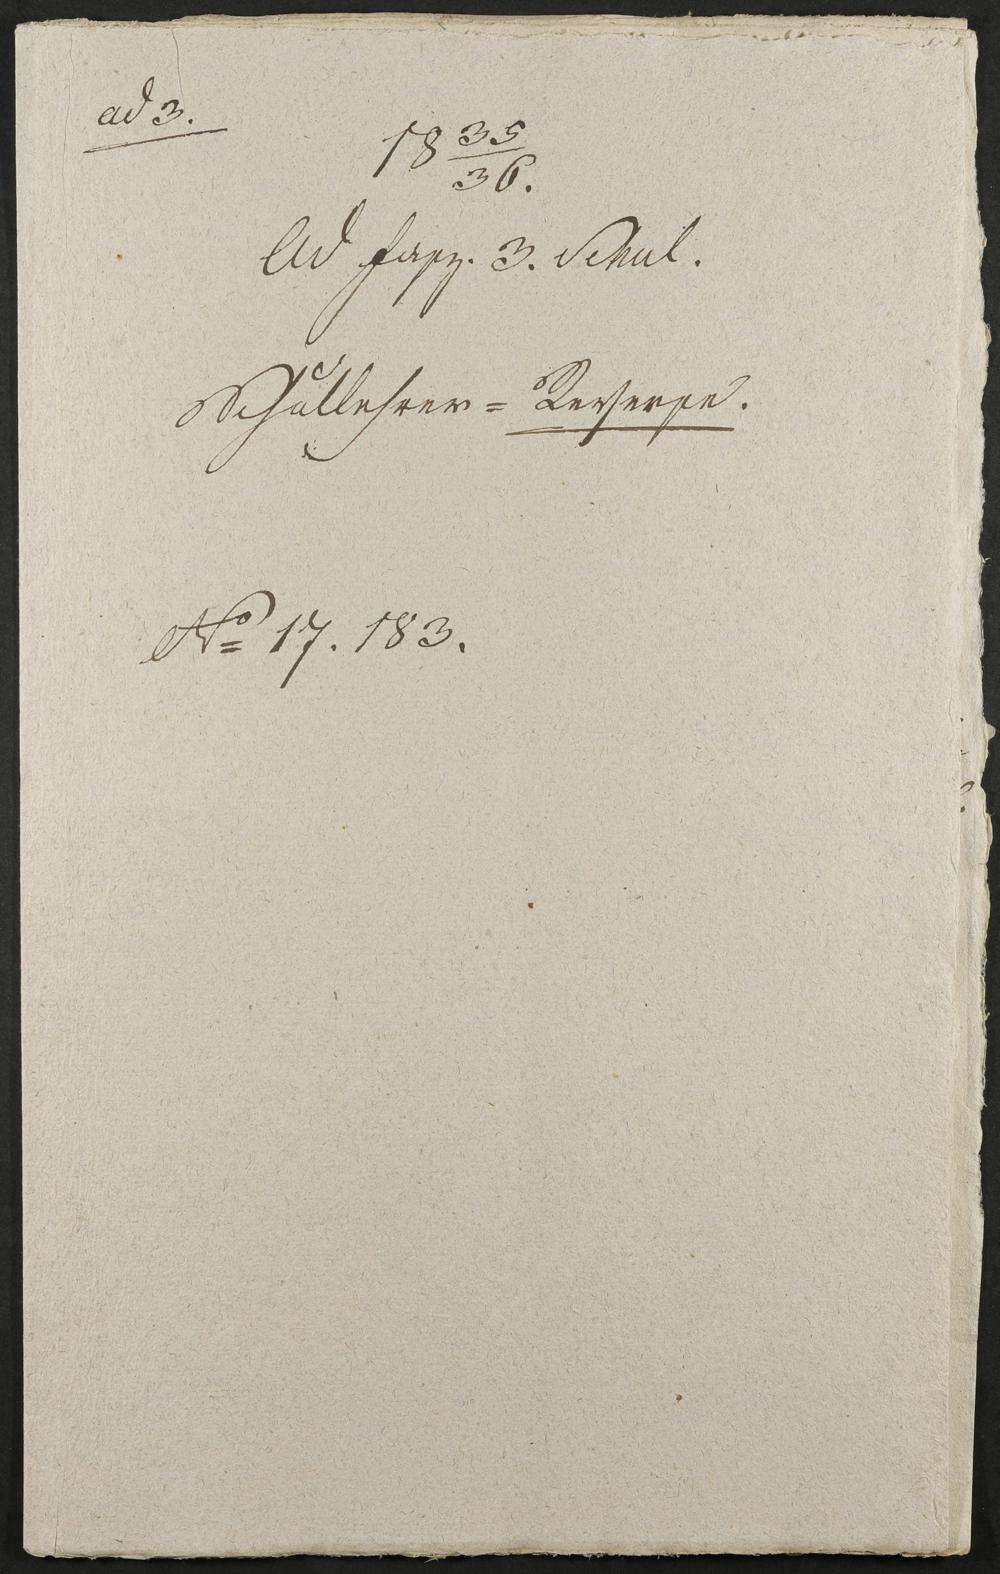 ad 3.
18 35/36.
Ad fasz. 3. Schul.
Schullehrer = Reverse.
No 17. 183.